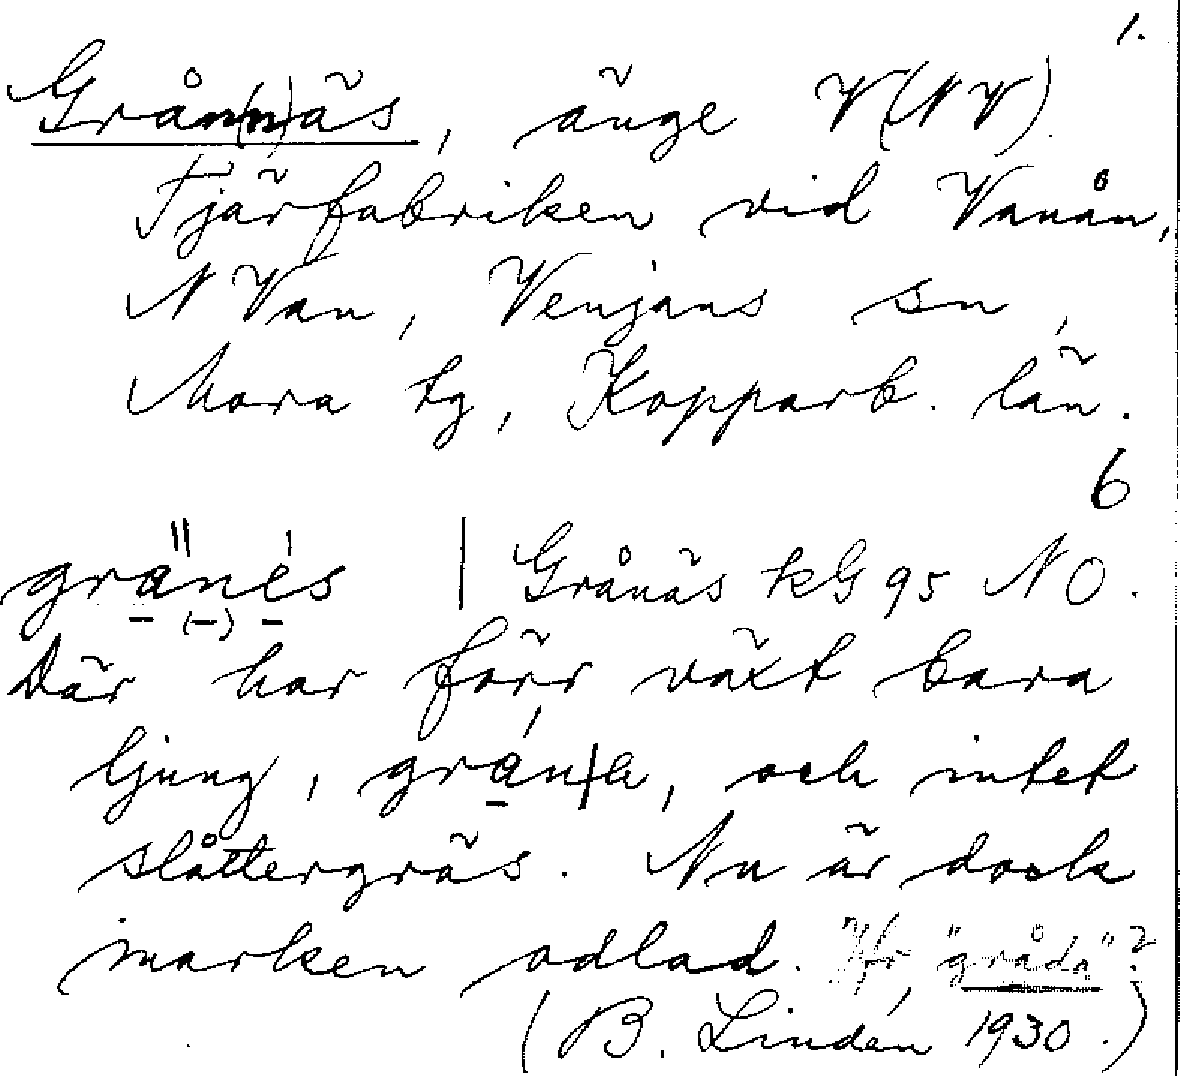 1.
Grån(n)äs, änge V(NV)
Tjärfabriken vid Vanån,
N Van, Venjans sn,
Mora tg, Kopparb. län.
6
gränès | Grånäs kG 95 NO.
Där har förr växt bara
ljung, och intet
slåttergräs. Nu är dock
marken odlad. "gråda"?
(B. Lindén 1930.)